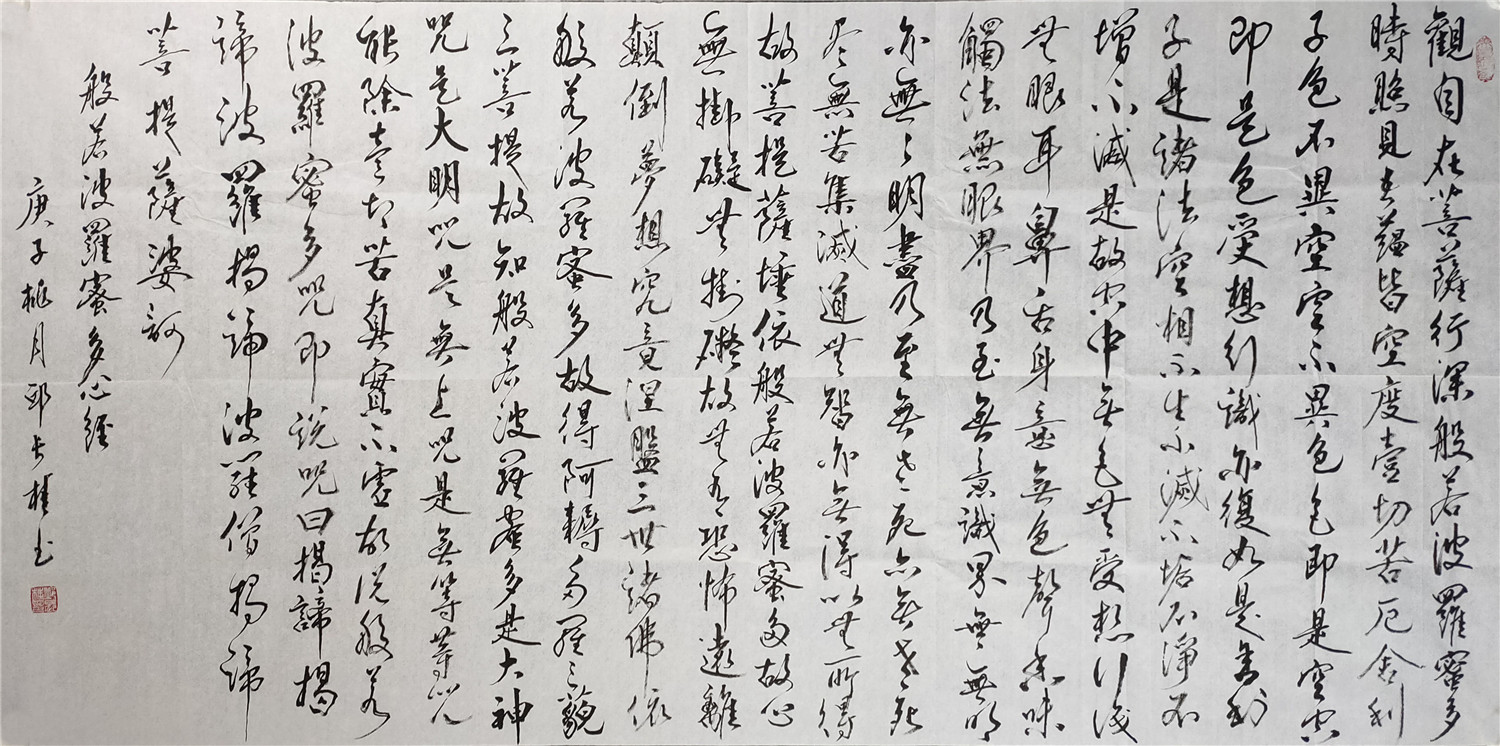 觀自在菩薩行深般若波羅蜜多
時照見五蘊皆空度壹切苦厄舍利
子色不異空空不異色色即是空空
即是色受想行識亦復如是舍利
子是諸法空相不生不滅不垢不淨不
增不減是故空中無色無受想行識
無眼耳鼻舌身意無色聲香味
觸法無眼界乃至無意識界無無明
亦無無明盡乃至無老死亦無老死
盡無苦集滅道無智亦無得以無所得
故菩提薩埵依般若波羅蜜多故心
無掛礙無掛礙故無有恐怖遠離
顛倒夢想究竟涅盤三世諸佛依
般若波羅蜜多故得阿耨多羅三藐
三菩提故知般若波羅蜜多是大神
咒是大明咒是無上咒是無等等咒
能除壹切苦真實不虛故說般若
波羅蜜多咒即說咒曰揭諦揭
諦波羅揭諦波羅僧揭諦
菩提薩婆訶
般若波羅蜜多心經
庚子桃月邱書